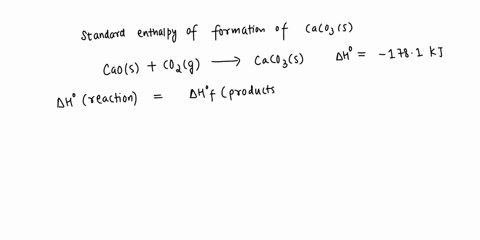 Standard enthalpy of formation of CaCO₃(s)
CaO(s) + CO₂(g) ⟶ CaCO₃(s) ΔH° = -178.1 kJ
ΔH° (reaction) = ΔH°f (products